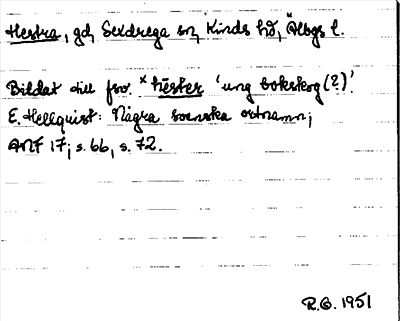 Hestra, gd, Sexdrega sn, Kinds hd, Älvbgs l.
Bildat till fsv. *hēster 'ung bokskog(?)'.
E. Hellquist: Några svenska ortnamn;
ANF 17, s. 66, s. 72.
R.G. 1951